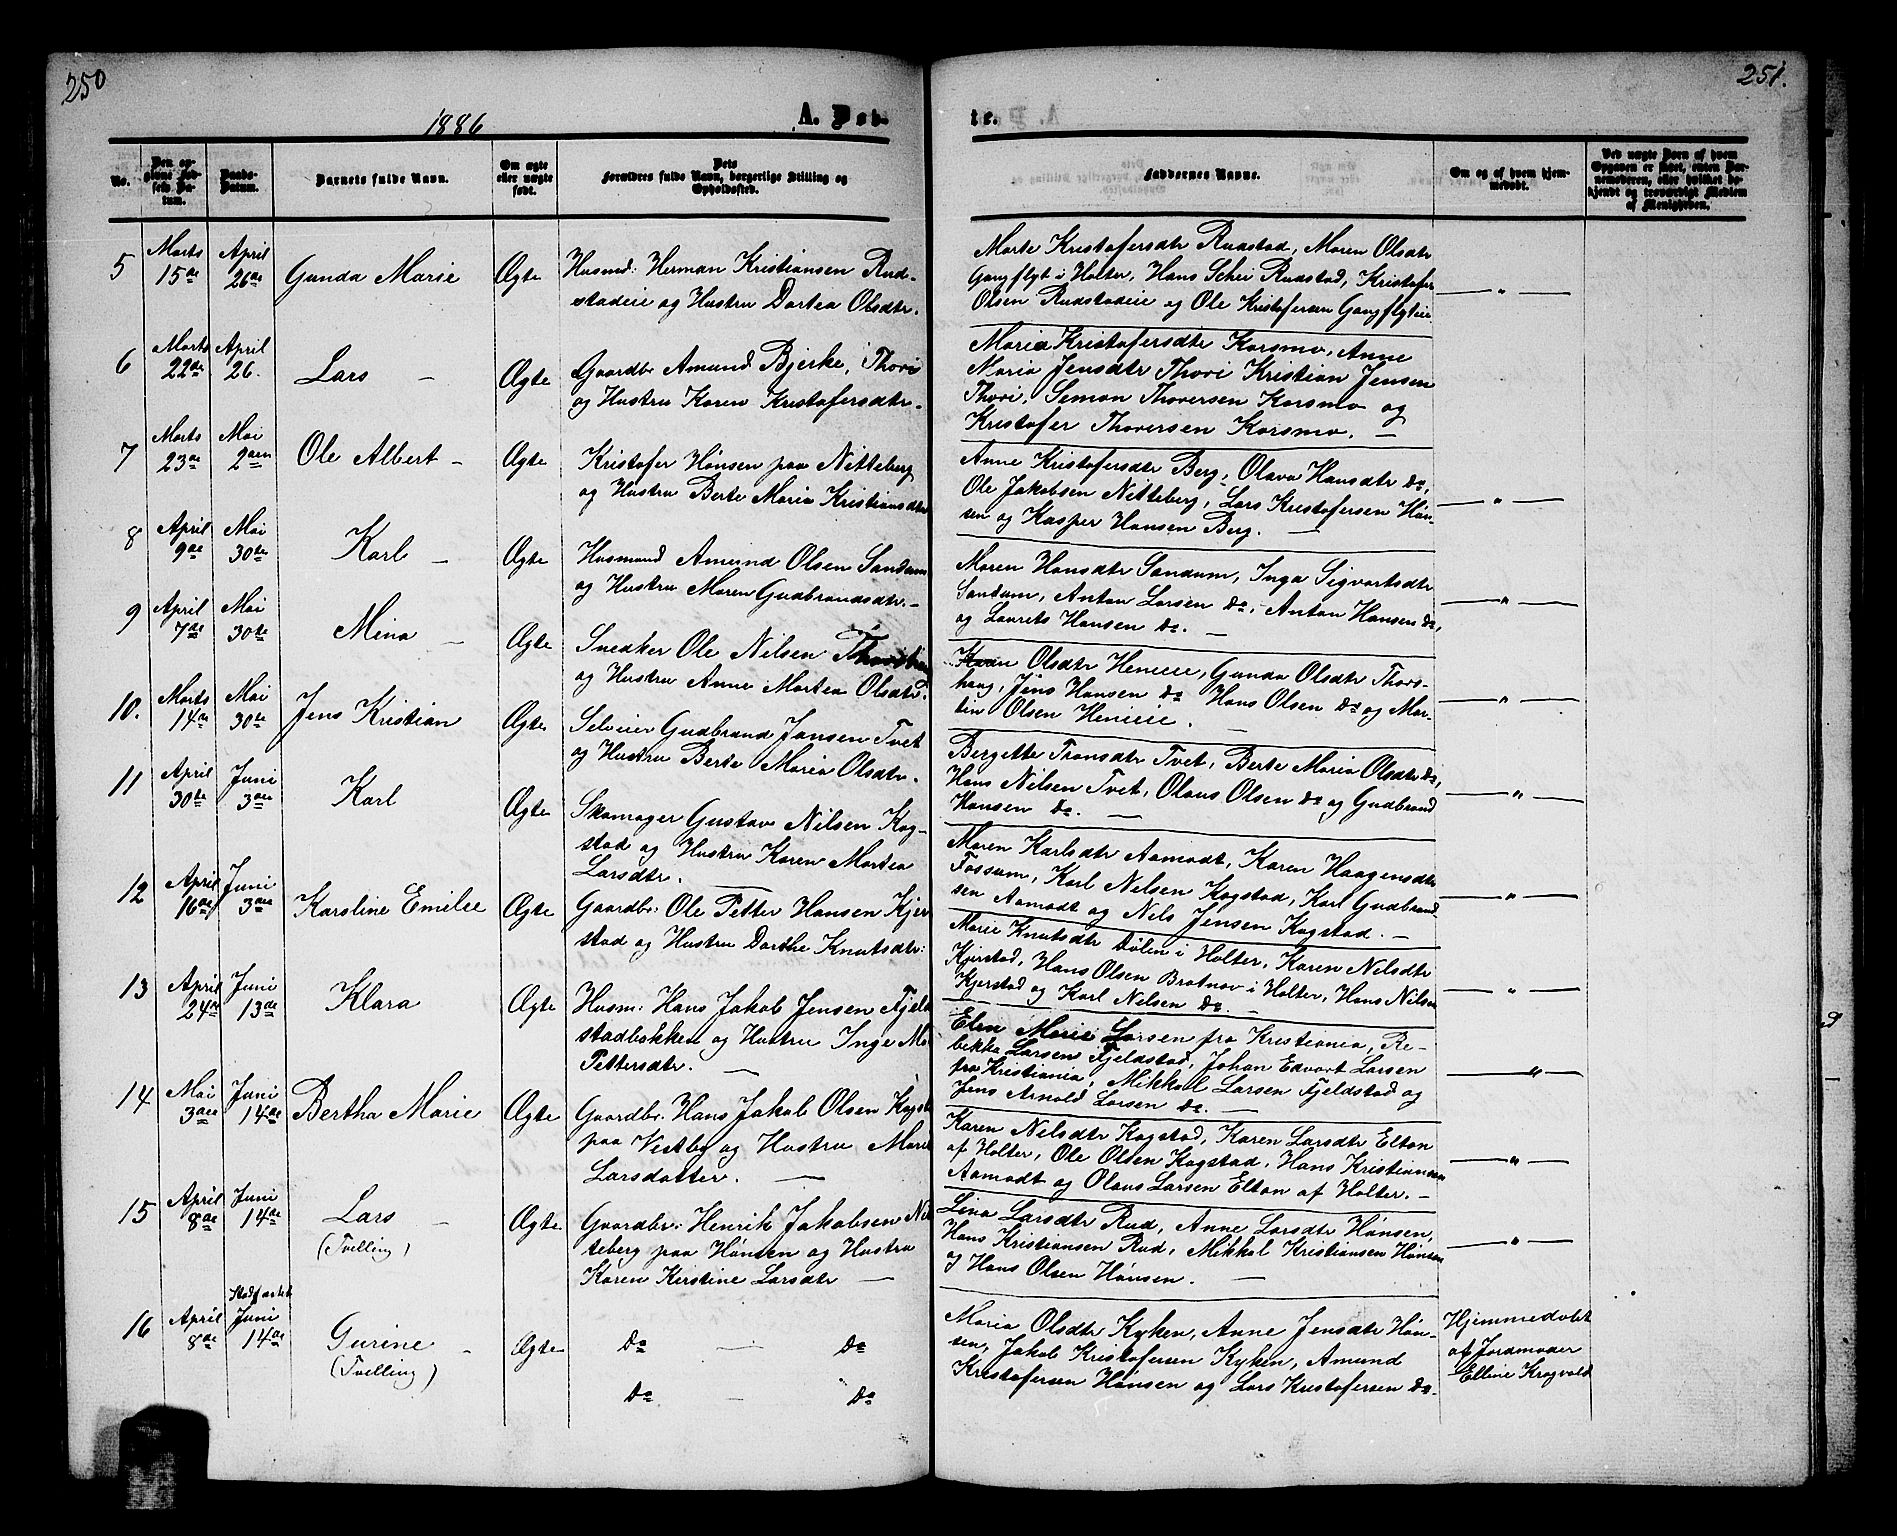 250
251.
1886
A. Døb-
te.
No.
Den op-
givne Fød-
sels Da-
tum.
Daabs-
Datum.
Barnets fulde Navn.
Om ægte
eller uægte
født.
Dets
Forældres fulde Navn, borgerlige Stilling og
Opholdssted.
Faddernes Navne.
Om og af hvem hjem-
medøbt.
Ved uægte Børn af hvem
Opgaven er skeet, enten Bar-
nemoderen, eller hvilket be-
kjendt og troværdigt Medlem
af Menigheden.
5 Marts 15de April 26de Gunda Marie Ægte
Husmd: Herman Kristiansen Rud-
stadeie og Hustru Dortea Olsdtr.
Marte Kristofersdtr Rudstad, Maren Olsdtr
Gangflyt i Holter, Hans Schei Rudstad, Kristofer
Olsen Rudstadeie og Ole Kristofersen Gangflyteie
— " —
6 Marts 22de April 26. Lars — Ægte
Gaardbr Amund Bjerke, Thori
og Hustru Karen Kristofersdtr.
Maria Kristofersdtr Korsmo, Anne
Maria Jensdtr Thori Kristian Jensen
Thori, Semon Thoversen Korsmo og
Kristofer Thoversen Korsmo. —
7 Marts 23de Mai 2den Ole Albert — Ægte
Kristofer Hønsen paa Nitteberg
og Hustru Berte Maria Kristiansdtr
Anne Kristofersdtr Berg, Olava Hansdtr do,
Ole Jakobsen Nitteberg, Lars Kristofersen Høn-
sen og Kasper Hansen Berg. —
— " —
8 April 9de Mai 30te Karl — Ægte
Husmand Amund Olsen Sandum
og Hustru Maren Gudbrandsdtr. —
Maren Hansdtr Sandum, Inga Sigvartsdtr
Sandum, Anton Larsen do, Anton Hansen do,
og Laurits Hansen do. —
— " —
9 April 7de Mai 30te Mina — Ægte
Snedker Ole Nilsen
og Hustru Anne Martea Olsdtr.
Karen Olsdtr Henieie, Gunda Olsdtr Thors-
haug, Jens Hansen do Hans Olsen do og Mar-
tin Olsen Henieie. —
— " —
10. Marts 14de Mai 30te Jens Kristian Ægte
Selveier Gudbrand Jansen Tvet
og Hustru Berte Maria Olsdtr.
Bergette Transdtr Tvet, Berte Maria Olsdtr do,
Hans Nilsen Tvet, Olaus Olsen do og Gudbrand
Hansen do. —
— " —
11 April 30te Juni 3die Karl Ægte
Skomager Gustav Nilsen Kog-
stad og Hustru Karen Martea
Larsdtr. —
Maren Karlsdtr Aamodt, Karen Haagensdtr
Fossum, Karl Nilsen Kogstad, Karl Gudbrand-
sen Aamodt og Nils Jensen Kogstad. —
— " —
12 April 16de Juni 3die Karoline Emilie Ægte
Gaardbr: Ole Petter Hansen Kjer
stad og Hustru Dorthe Knutsdtr:
Marie Knutsdtr Dølen i Holter, Karen Nilsdtr
Kjerstad, Hans Olsen Bratnov i Holter, Hans Nilsen
Kjerstad og Karl Nilsen do. —
— " —
13 April 24de Juni 13de Klara Ægte
Husm: Hans Jakob Jensen Fjeld
stadbakken og Hustru Inge Ma
Pettersdtr. —
Elen Marie Larsen fra Kristiania, Re-
bekka Larsen Fjeldstad, Johan Edvart Larsen
fra Kristiania, Mikkal Larsen Fjeldstad og
Jens Arnold Larsen do. —
— " —
14 Mai 3die Juni 14de Bertha Marie Ægte
Gaardbr: Hans Jakob Olsen Kogst
paa Vestby og Hustru Marie
Larsdatter. —
Karen Nilsdtr Kogstad, Karen Larsdtr Elton
af Holter, Ole Olsen Kogstad, Hans Kristiansen
Aamodt og Olaus Larsen Elton af Holter. —
— " —
15 April 8de Juni 14de Lars — (Tvilling) Ægte
Gaardbr: Henrik Jakobsen Nit
teberg paa Hønsen og Hustru
Karen Kerstine Larsdtr —
Lina Larsdtr Rud, Anne Larsdtr Hønsen,
Hans Kristiansen Rud, Mikkal Kristiansen Hønsen
og Hans Olsen Hønsen. —
— " —
16 April 8de Stadfæstet Juni 14de Gurine — (Tvilling) Ægte
do — do
do — do
Maria Olsdtr Kyken, Anne Jensdtr Høn-
sen, Jakob Kristofersen Kyken, Amund
Kristofersen Hønsen og Lars Kristofersen do.
Hjemmedøbt
af Jordmoder
Elline Kragvold